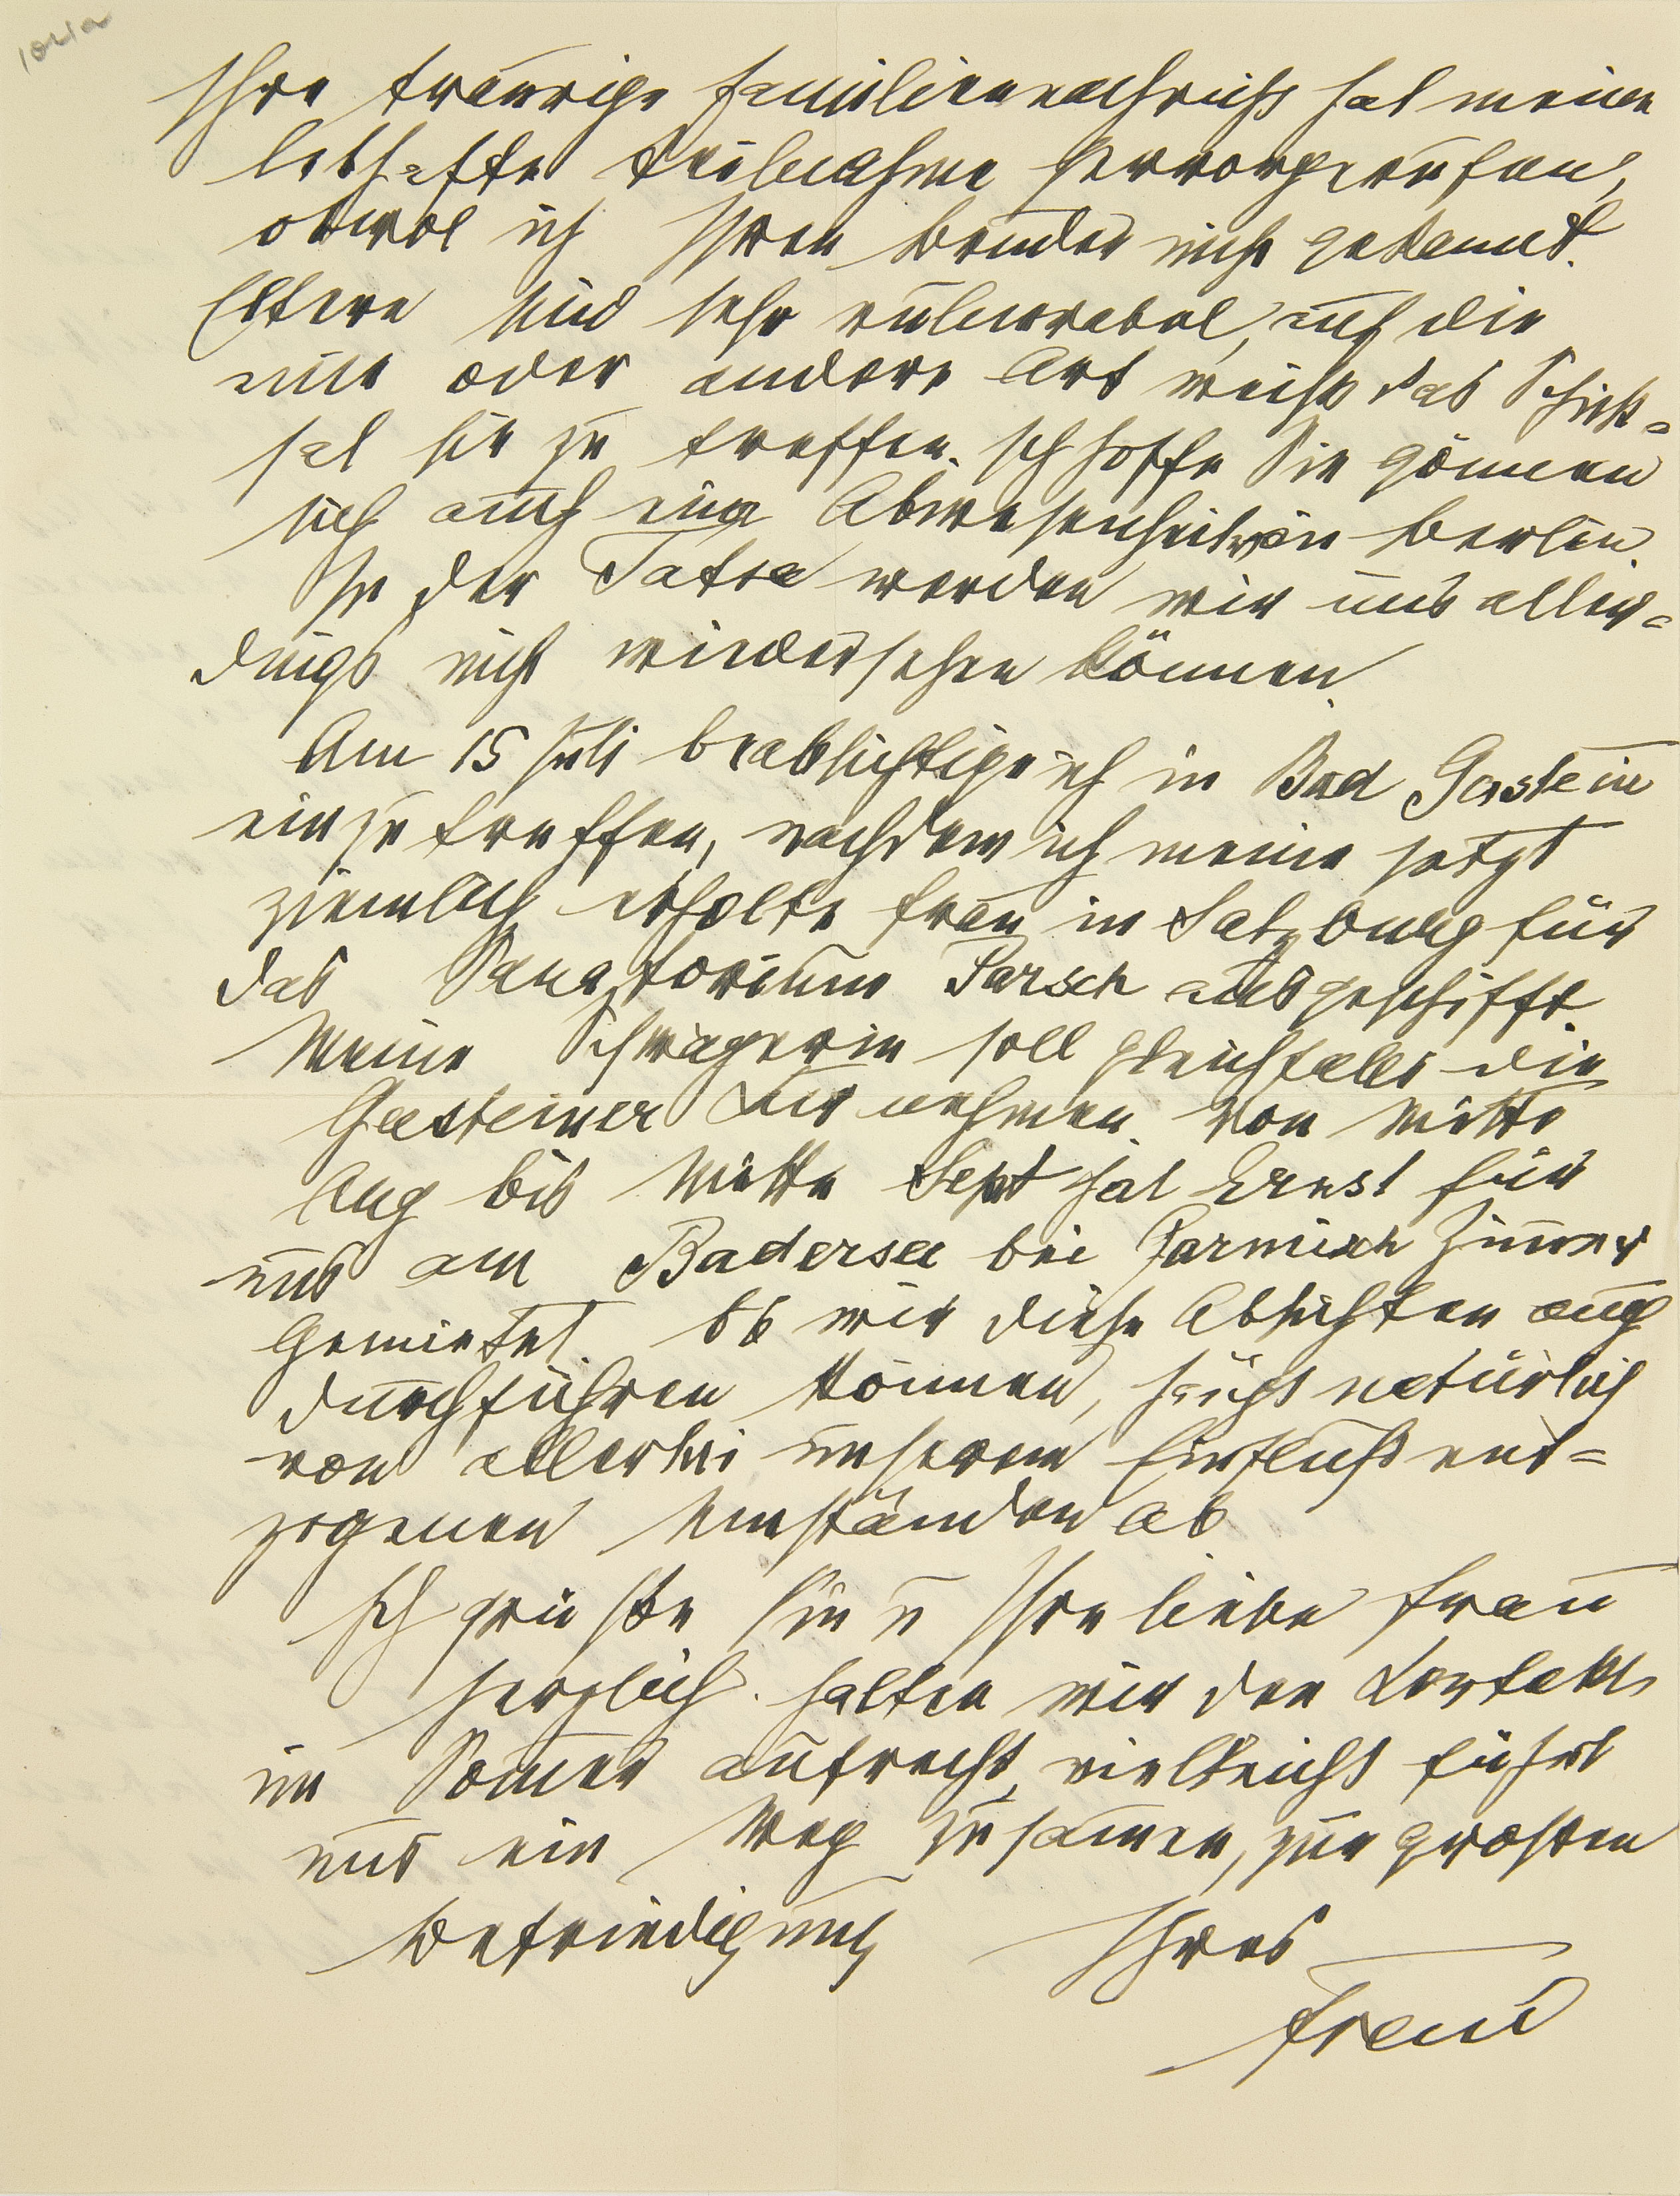 Ihre traurige Familiennachricht hat meine
lebhafte Teilnahme hervorgerufen,
obwol ich Ihren Bruder nicht gekannt.
Eltern sind sehr vulnerabel, auf die
eine oder andere Art weiß das Schick=
sal sie zu treffen. Ich hoffe Sie gönnen
sich auch eine Abwesenheit von Berlin.
In der Tatra werden wir uns aller=
dings nicht wiedersehen können.
Am 15 Juli beabsichtige ich in Bad Gastein
einzutreffen, nachdem ich meine jetzt
ziemlich erholte Frau in Salzburg für
das Sanatorium Parsch ausgeschifft.
Meine Schwägerin soll gleichfalls die
Gasteiner Kur nehmen. Von Mitte
Aug bis Mitte Sept hat Ernst für
uns am Badersee bei Garmisch Zimmer
gemietet. Ob wir diese Absichten auch
durchführen können, hängt natürlich
von allerlei unserem Einfluß ent=
zogenen Umständen ab
Ich grüße Sie u Ihre liebe Frau
herzlich. Halten wir den Kontakt
im Sommer aufrecht, vielleicht führt
uns ein Weg zusammen, zur großen
Befriedigung Ihres
Freud